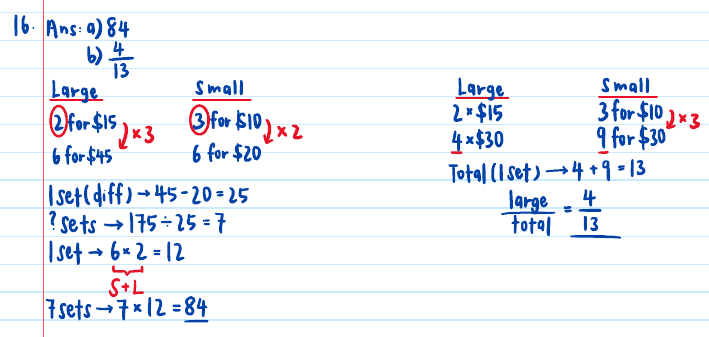 16. Ans: a) 84
b) 4/13
Large
2 for $15
6 for $45
×3
Small
3 for $10
6 for $20
×2
1 set (diff) → 45 - 20 = 25
? sets → 175 ÷ 25 = 7
1 set → 6 × 2 = 12
S + L
7 sets → 7 × 12 = 84
Large
2 × $15
4 × $30
Small
3 for $10
9 for $30
×3
Total (1 set) → 4 + 9 = 13
large/total = 4/13